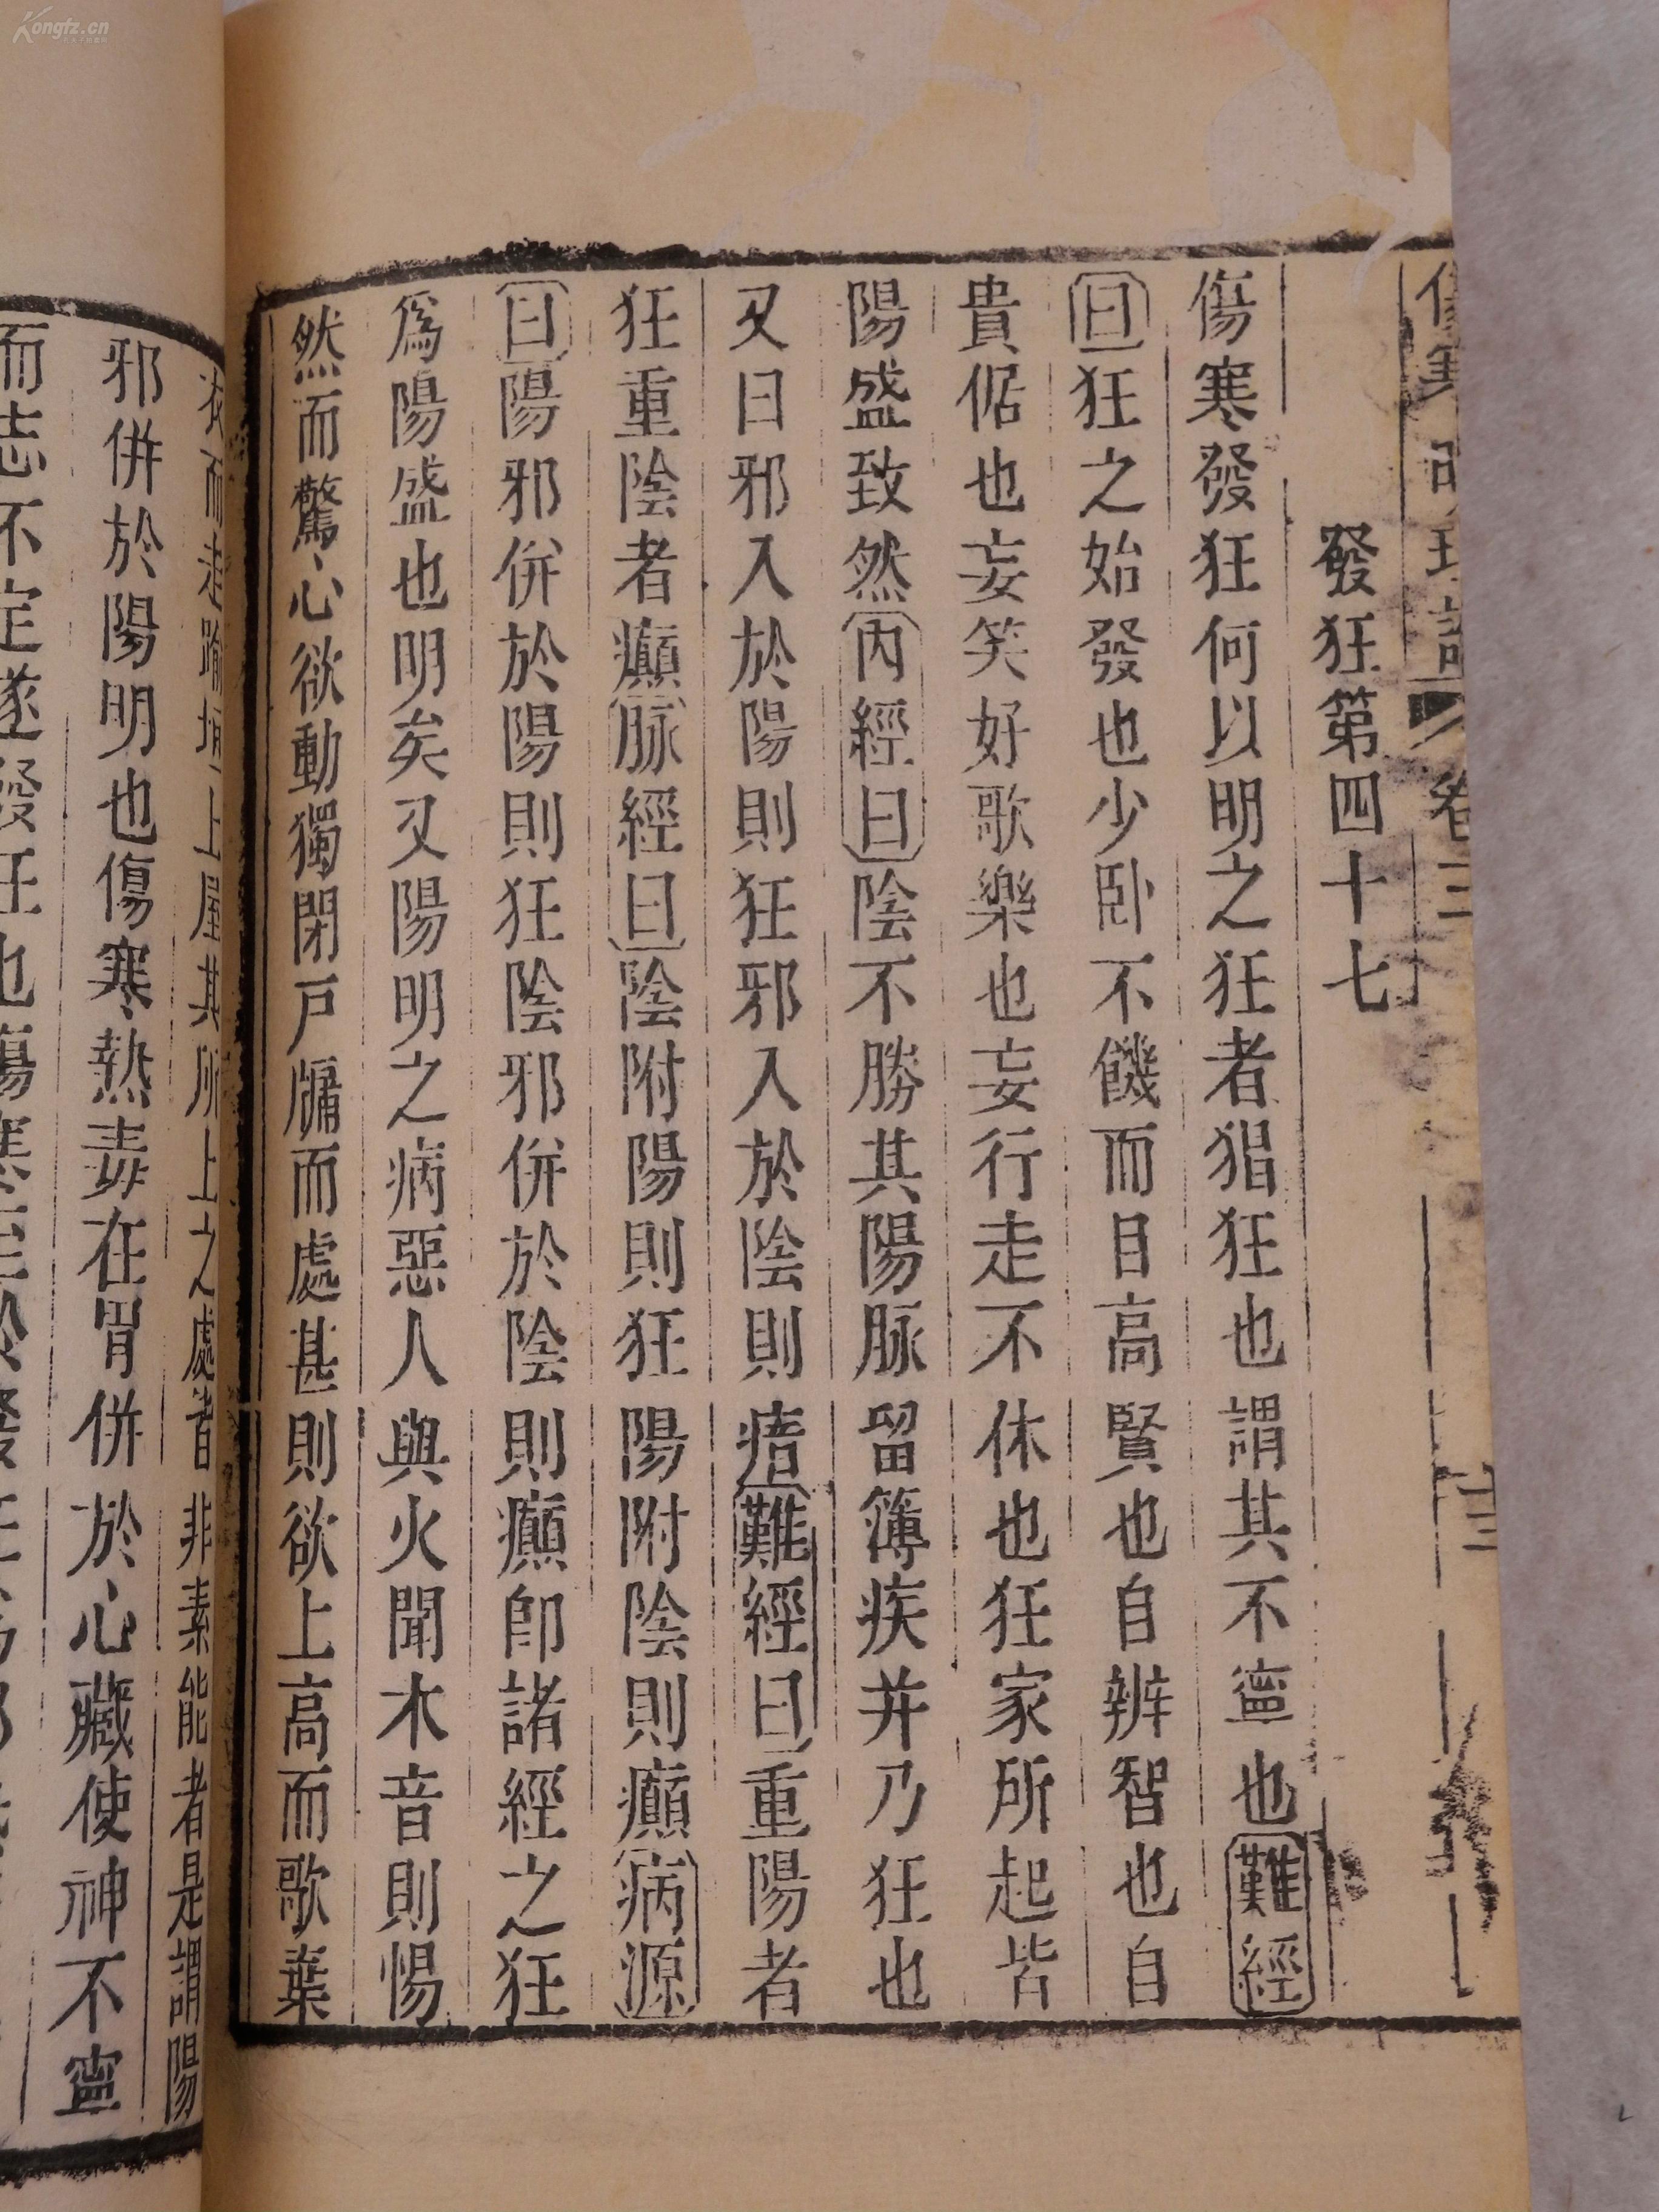 發狂第四十七
傷寒發狂何以明之狂者猖狂也謂其不寧也難經
曰狂之始發也少卧不饑而目高賢也自辨智也自
貴倨也妄笑好歌樂也妄行走不休也狂家所起皆
陽盛致然内經曰陰不勝其陽脉留簿疾并乃狂也
又曰邪入於陽則狂邪入於陰則瘖難經曰重陽者
狂重陰者癲脉經曰陰附陽則狂陽附陰則癲病源
曰陽邪併於陽則狂陰邪併於陰則癲即諸經之狂
爲陽盛也明矣又陽明之病惡人與火聞木音則惕
然而驚心欲動獨閉戸牖而處甚則欲上高而歌棄
衣而走踰垣上屋其所上之處皆非素能者是謂陽
邪併於陽明也傷寒熱毒在胃併於心臟使神不寧
而志不定遂發狂也傷寒
Kongfz.cn